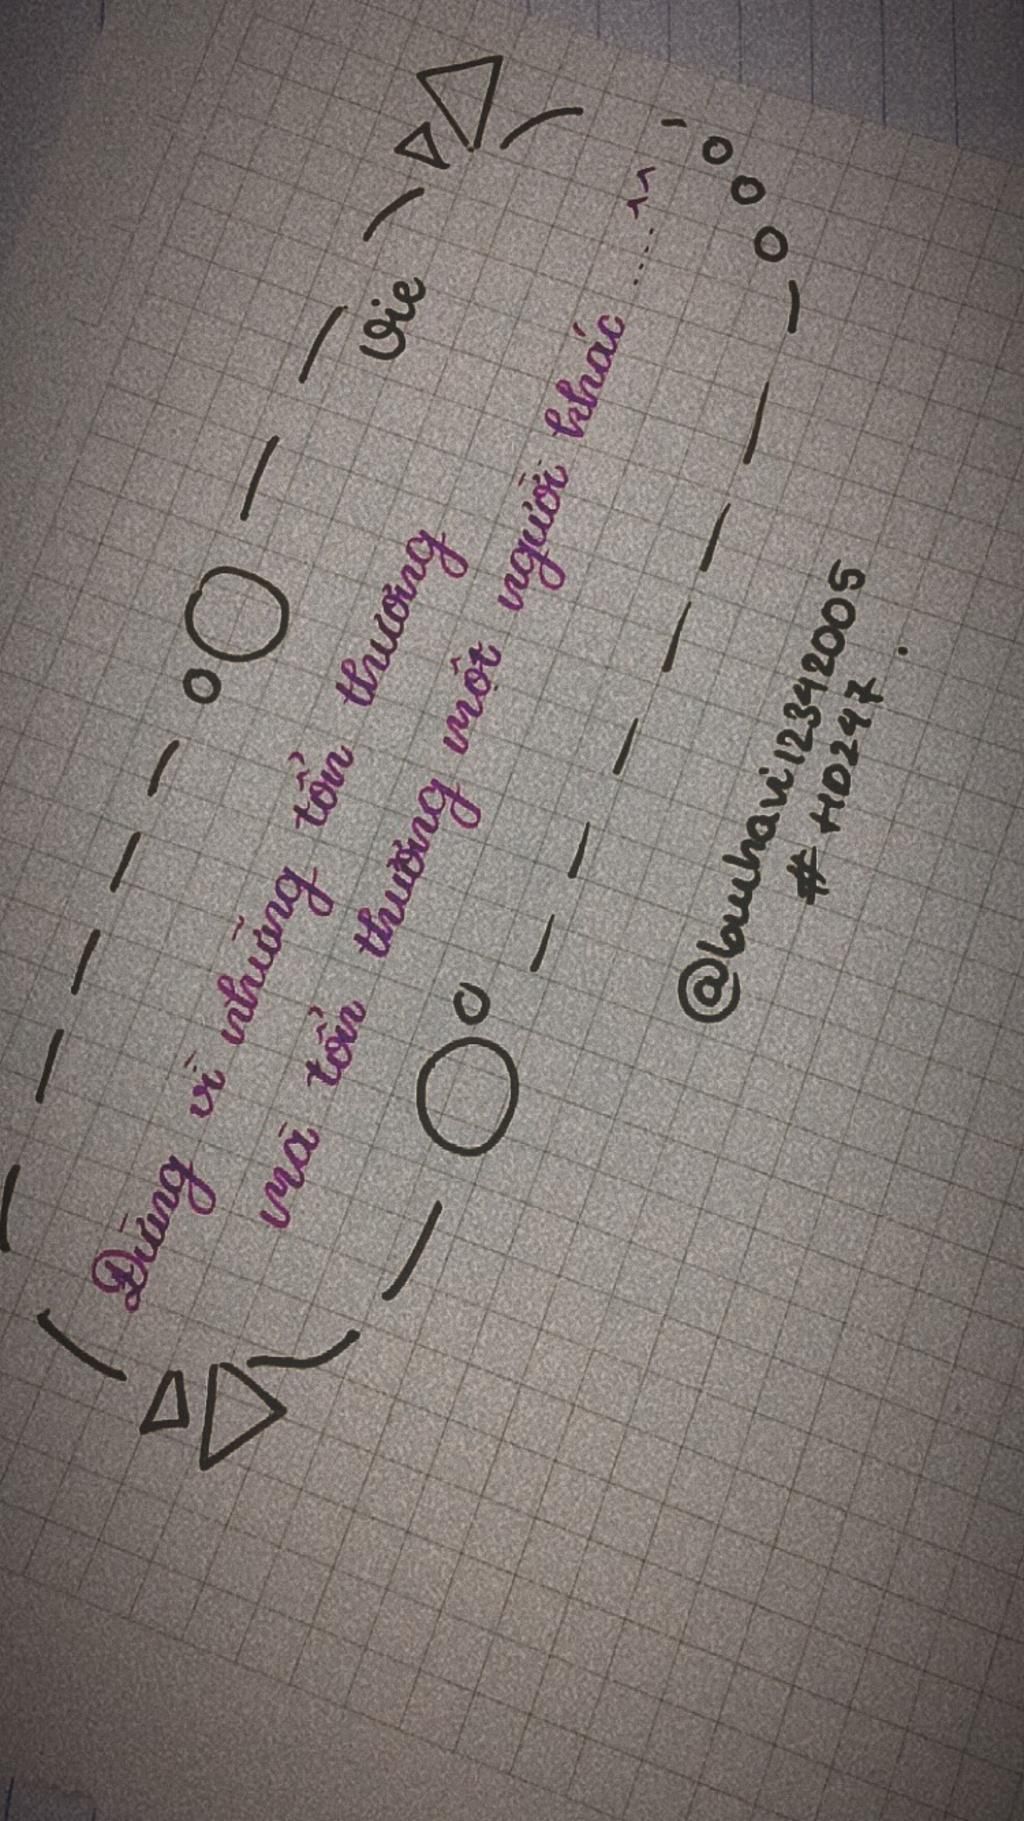 Vie
Đừng vì những tổn thương
mà tổn thương một người khác ..... ^^
@buuhavi12342005
# HD247.